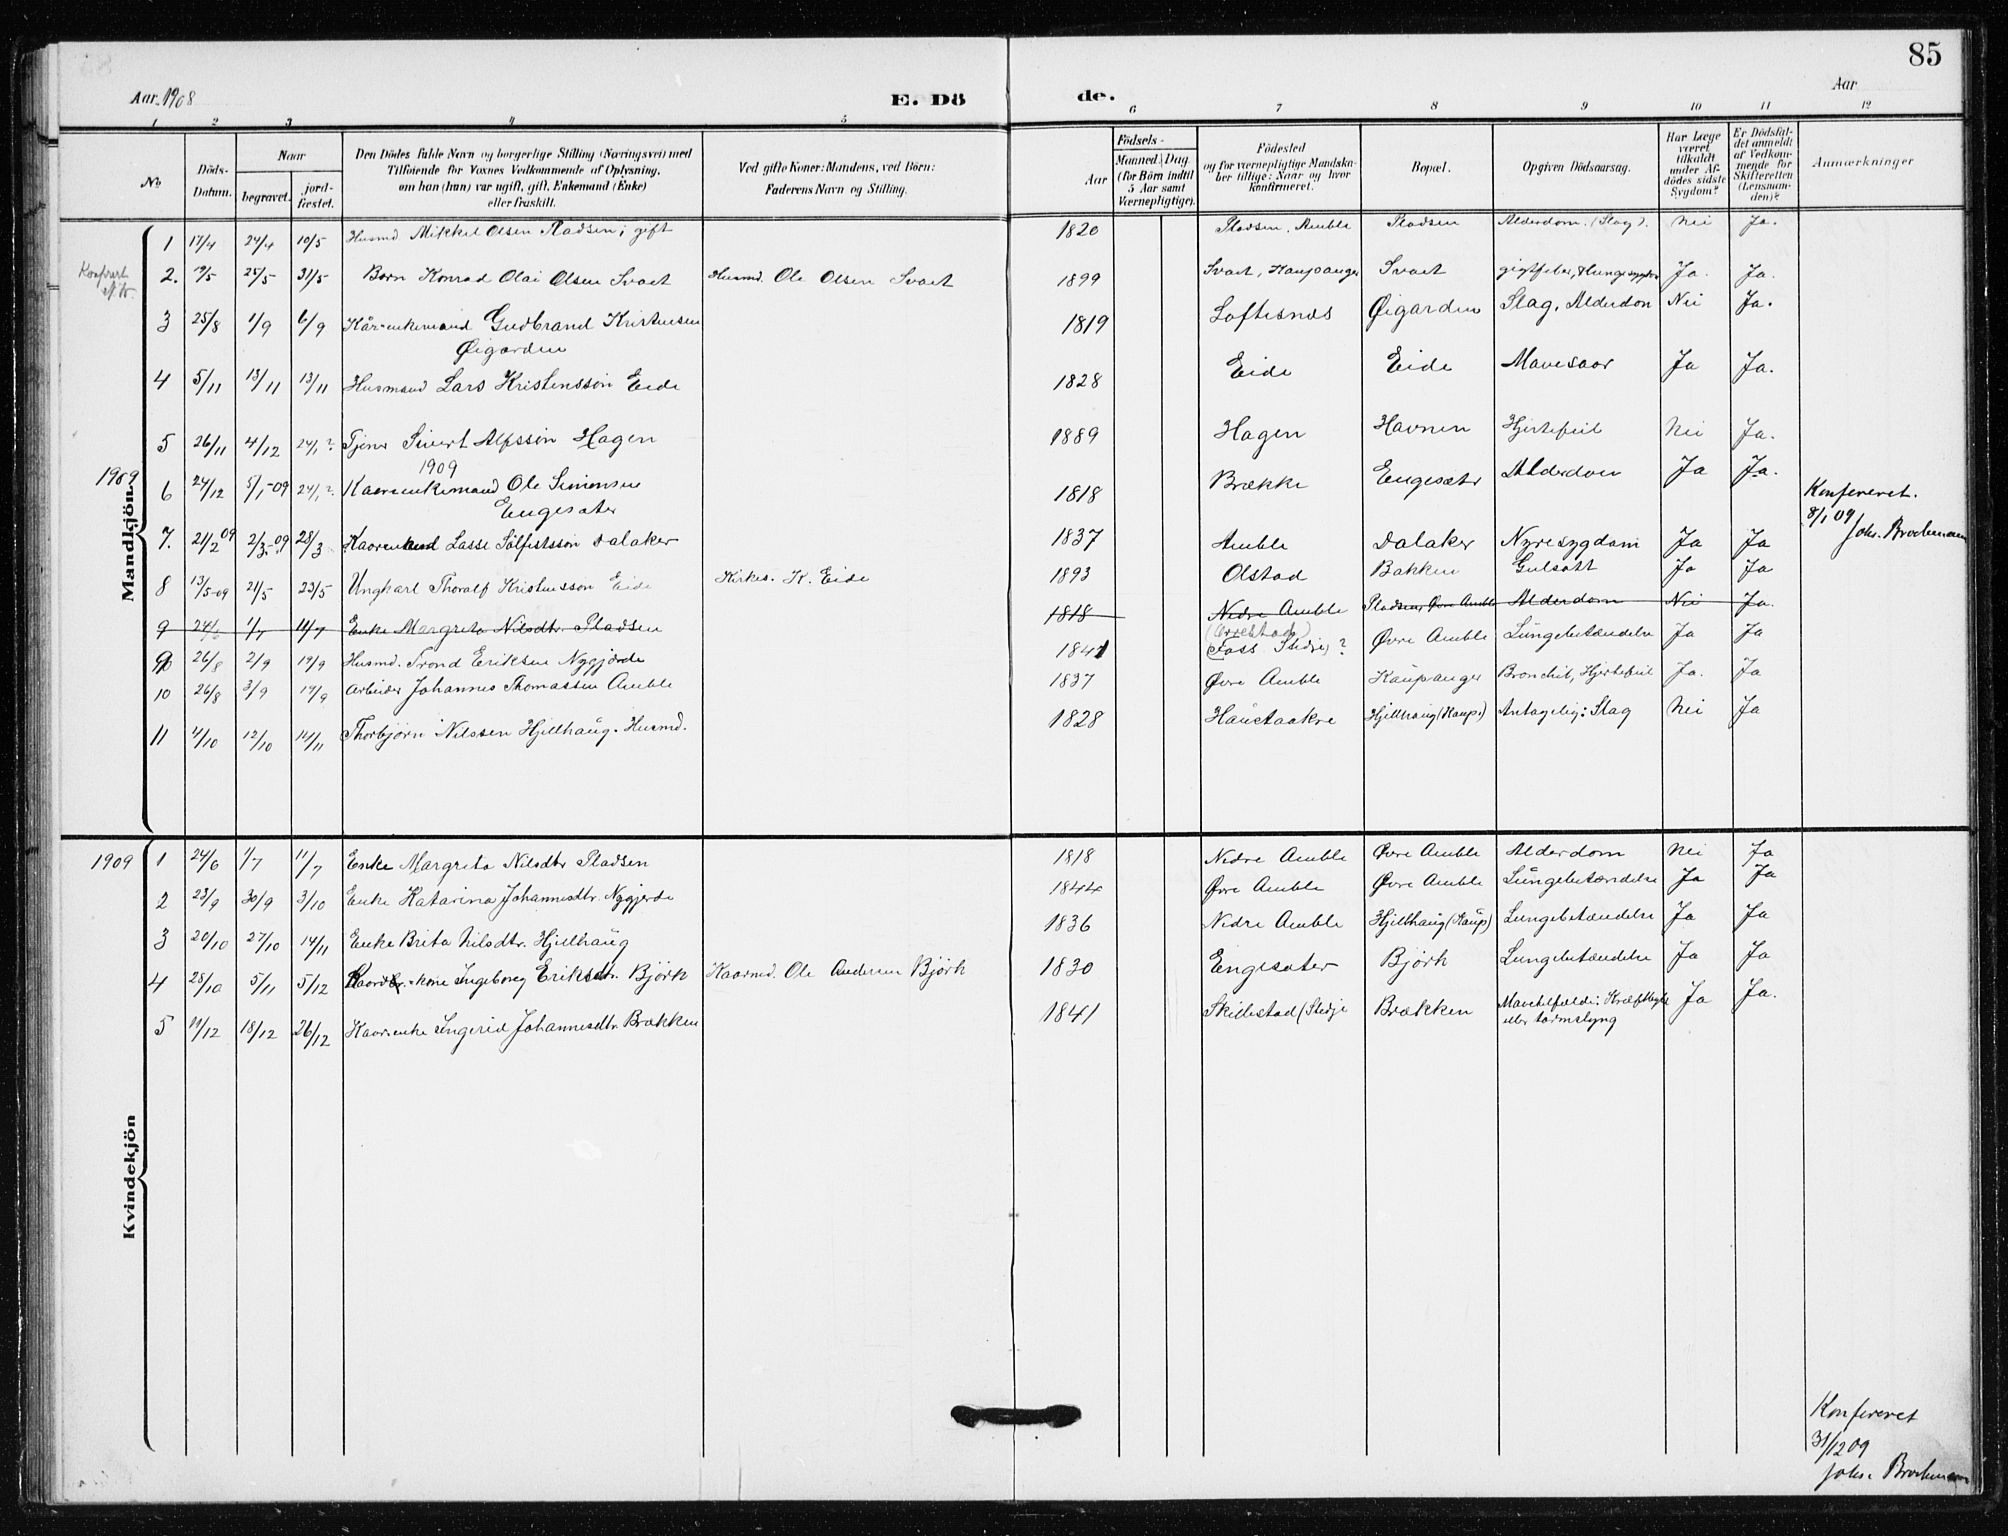 85
Aar 1908
E. Dö
de.
Aar
1 2 3 4 5 6 7 8 9 10 11 12
No
Döds-Datum.
Naar
begravet.
jord-fæstet.
Den Dödes fulde Navn og borgerlige Stilling (Næringsvei) med
Tilföiende for Voxnes Vedkommende af Oplysning,
om han (hun) var ugift, gift, Enkemand (Enke)
eller fraskilt.
Ved gifte Koner: Mandens, ved Börn:
Faderens Navn og Stilling.
Födsels-
Aar
Maaned. Dag
(for Börn indtil
5 Aar samt
Værnepligtige).
Födested
og for værnepligtige Mandska-
ber tillige: Naar og hvor
konfirmeret.
Bopæl.
Opgiven Dödsaarsag.
Har Læge
været
tilkaldt
under Af-
dödes sidste
Sygdom?
Er Dödsfal-
det anmeldt
af Vedkom-
mende for
Skifteretten
(Lensman-
den)?
Anmærkninger
Mandkjön
1 17/4 24/4 10/5 Husmd Mikkel Olsen Pladsen; gift 1820 Pladsen, Amble Pladsen Alderdom. (Slag). Nei Ja.
2. 25/5 31/5 Barn Konrad Olai Olsen Svaet Husmd. Ole Olsen Svaet 1899 Svaet, Kaupanger Svaet gigtfeber, Ja. Ja.
3 25/8 1/9 6/9 Kårenkemand Gudbrand Kristensen 1819 Loftesnæs Øigarden Slag, Alderdom Nei Ja.
Øigarden
4 5/11 13/11 13/11 Husmand Lars Kristensson Eide 1828 Eide Eide Mavesaar Ja Ja.
5 26/11 4/12 24/1? Tjener Sivert Alfsson Hagen 1889 Hagen Havnen Hjertefeil Nei Ja.
1909
1909
6 24/12 5/1-09 24/1? Kaarenkemand Ole Simonsen 1818 Brække Engesæter Alderdom Ja Ja.
Engesæter
Konfereret.
8/1 09
Johs. Brochmann
7. 21/2 09 2/3-09 28/3 Lasse Sølfestsson Dalaker 1837 Amble Dalaker Nyresygdom Ja Ja
8 13/5-09 21/5 23/5 Ungkarl Thoralf Kristensson Eide Kirkes. K. Eide 1893 Olstad Bakken Gulsott Ja Ja
9 24/6 1/7 11/7 Enke Margreta Nilsdtr. Pladsen 1818 Nedre Amble Pladsen, Øvre Amble Alderdom Nei Ja.
9 26/8 2/9 19/9 Husmd. Trond Eriksen Nygjærde 1841 (Foss Stedje)? Øvre Amble Lungebetændelse Ja Ja
10 26/8 3/9 19/9 Arbeider Johannes Thomassen Amble 1837 Øvre Amble Kaupanger Bronchit, Hjertefeil Ja. Ja
11 4/10 12/10 14/11 Thorbjørn Nilssen Hjellhaug. Husmd. 1828 Haustaakre Hjellhaug (Kaup.) Antagelig: Slag Nei Ja
Kvindekjön
1909
1 24/6 1/7 11/7 Enke Margreta Nilsdtr Pladsen 1818 Nedre Amble Øvre Amble Alderdom Nei Ja
2 23/9 30/9 3/10 Enke Katarina Johannesdtr. Nygjerde 1844 Øvre Amble Øvre Amble Lungebetændelse Ja Ja
3 20/10 27/10 14/11 Enke Brita Nilsdtr. Hjellhaug 1836 Nedre Amble Hjellhaug (Kaup) Lungebetændelse Ja Ja
4 28/10 5/11 5/12 Ingeborg Eriksdtr. Björk Kaarmd. Ole Andersen Björk 1830 Engesæter Björk Lungebetændelse Ja Ja
5 11/12 18/12 26/12 Kaarenke Ingerid Johannesdtr. Brækken 1841 Skillestad (Stedje Brækken Mavetilfælde: Kræft Ja Ja.
eller tarmslyng
Konfereret
31/12 09
Johs. Brochmann